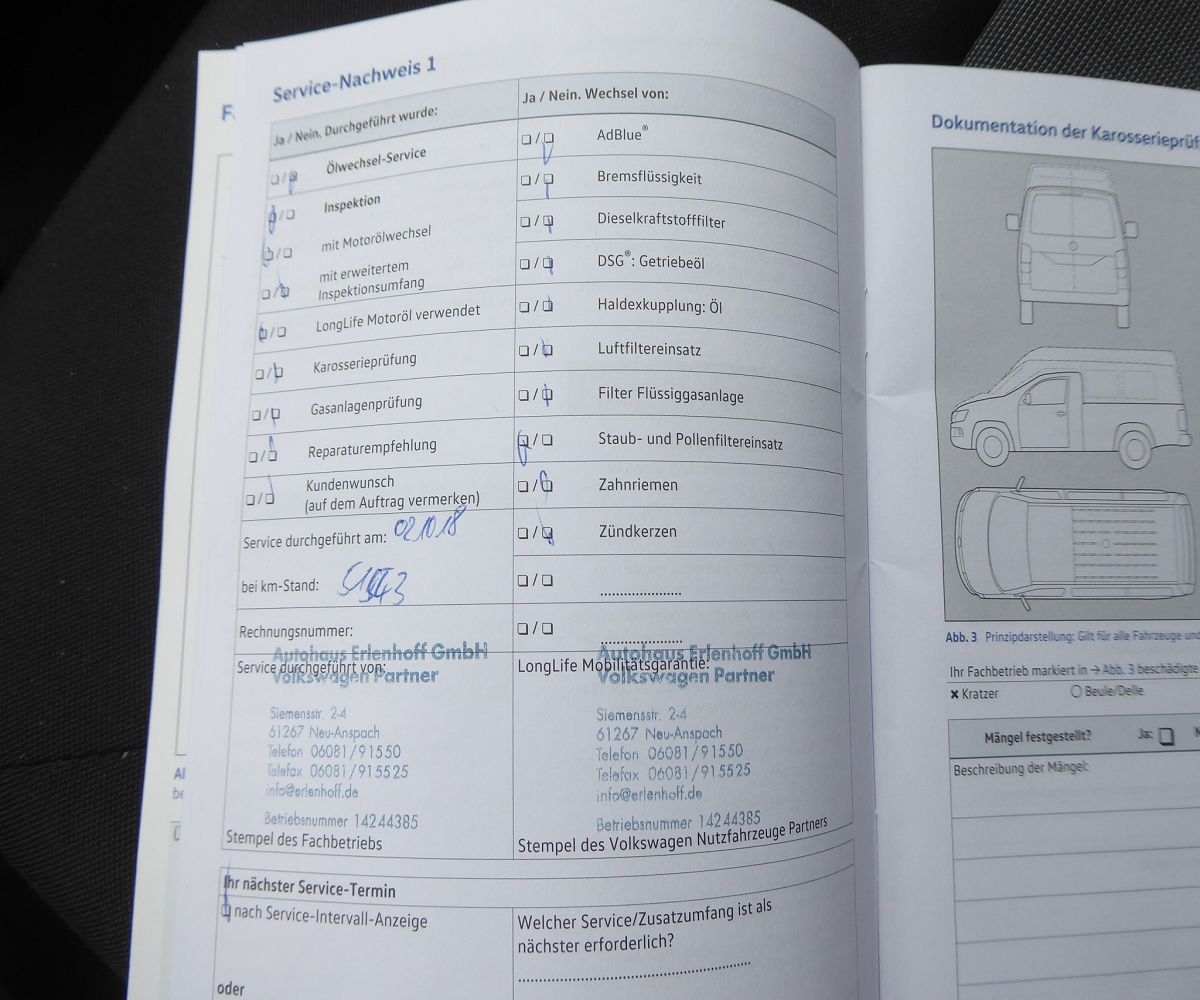 Service-Nachweis 1
Ja / Nein. Durchgeführt wurde:
Ölwechsel-Service
Inspektion
mit Motorölwechsel
mit erweitertem
Inspektionsumfang
LongLife Motoröl verwendet
Karosserieprüfung
Gasanlagenprüfung
Reparaturempfehlung
Kundenwunsch
(auf dem Auftrag vermerken)
Service durchgeführt am: 02.10.18
bei km-Stand:
Rechnungsnummer:
Service durchgeführt von:
Autohaus Erlenhoff GmbH
Volkswagen Partner
Siemensstr. 2-4
61267 Neu-Anspach
Telefon 06081/91550
Telefax 06081/915525
info@erlenhoff.de
Betriebsnummer 14244385
Stempel des Fachbetriebs
Ja / Nein. Wechsel von:
AdBlue®
Bremsflüssigkeit
Dieselkraftstofffilter
DSG®: Getriebeöl
Haldexkupplung: Öl
Luftfiltereinsatz
Filter Flüssiggasanlage
Staub- und Pollenfiltereinsatz
Zahnriemen
Zündkerzen
LongLife Mobilitätsgarantie:
Autohaus Erlenhoff GmbH
Volkswagen Partner
Siemensstr. 2-4
61267 Neu-Anspach
Telefon 06081/91550
Telefax 06081/915525
info@erlenhoff.de
Betriebsnummer 14244385
Stempel des Volkswagen Nutzfahrzeuge Partners
Ihr nächster Service-Termin
nach Service-Intervall-Anzeige
oder
Welcher Service/Zusatzumfang ist als
nächster erforderlich?
Dokumentation der
Abb. 3 Prinzipdarstellung: Gilt für alle Fahrzeuge
Ihr Fachbetrieb markiert in → Abb. 3 beschädigte
✖ Kratzer
Beule/Delle
Mängel festgestellt? Ja:
Beschreibung der Mängel: